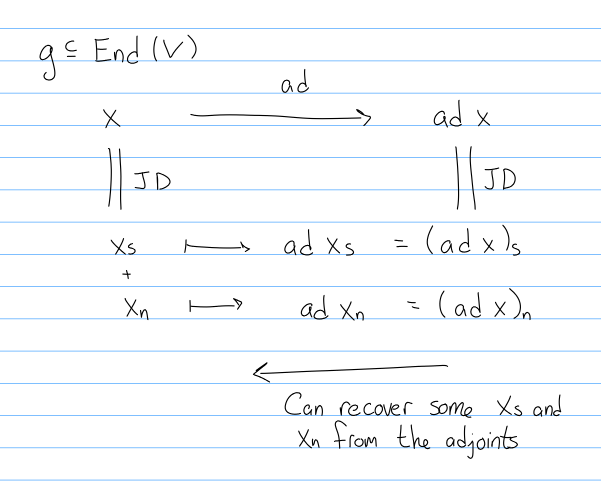 g ⊆ End (V)
ad
x ⟶ ad x
|| JD || JD
xs ↦ ad xs = (ad x)s
+
xn ↦ ad xn = (ad x)n
⟵
Can recover some xs and
xn from the adjoints